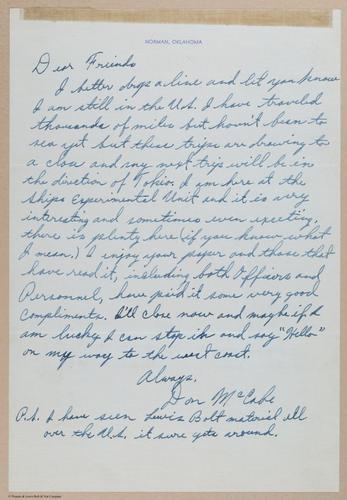 NORMAN, OKLAHOMA
Dear Friends
I better drop a line and let you know
I am still in the U.S. I have traveled
thousands of miles but haven't been to
sea yet but these trips are drawing to
a close and my next trip will be in
the direction of Tokio. I am here at the
Ships Experimental Unit and it is very
interesting and sometimes even exciting.
there is plenty here (if you know what
I mean.) I enjoy your paper and those that
have read it, including both Officers and
Personnel, have paid it some very good
compliments. I'll close now and maybe if I
am lucky I can stop in and say "Hello"
on my way to the west coast.
Always,
Don McCabe
P.S. I have seen Lewis Bolt material all
over the U.S. it sure gets around.